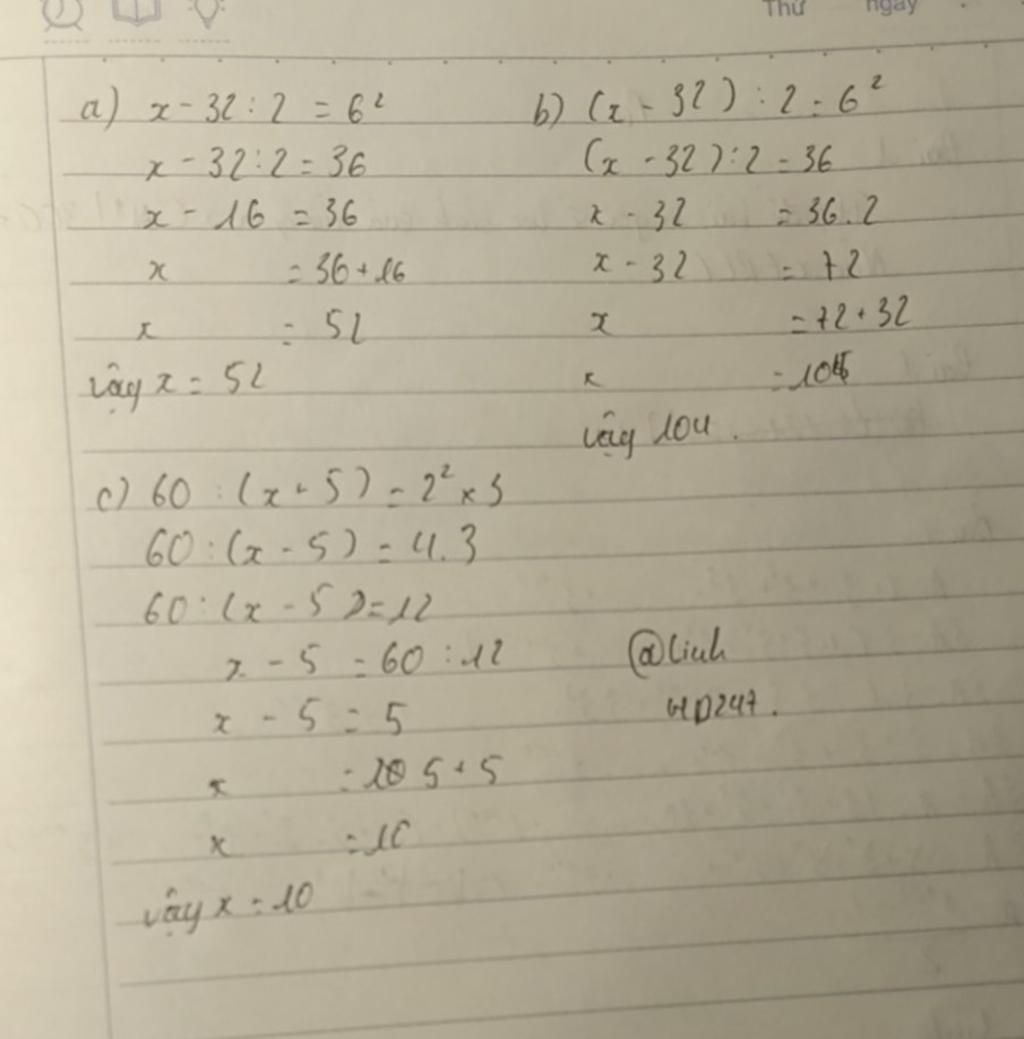 Thứ ngày
a) x - 32 : 2 = 6²
x - 32 : 2 = 36
x - 16 = 36
x = 36 + 16
x = 52
vậy x = 52
b) (x - 32) : 2 = 6²
(x - 32) : 2 = 36
x - 32 = 36 . 2
x - 32 = 72
x = 72 + 32
x = 104
vậy 104 .
c) 60 : (x - 5) = 2² x 3
60 : (x - 5) = 4 . 3
60 : (x - 5) = 12
x - 5 = 60 : 12
x - 5 = 5
x = 5 + 5
x = 10
vậy x = 10
@linh
HD247 .